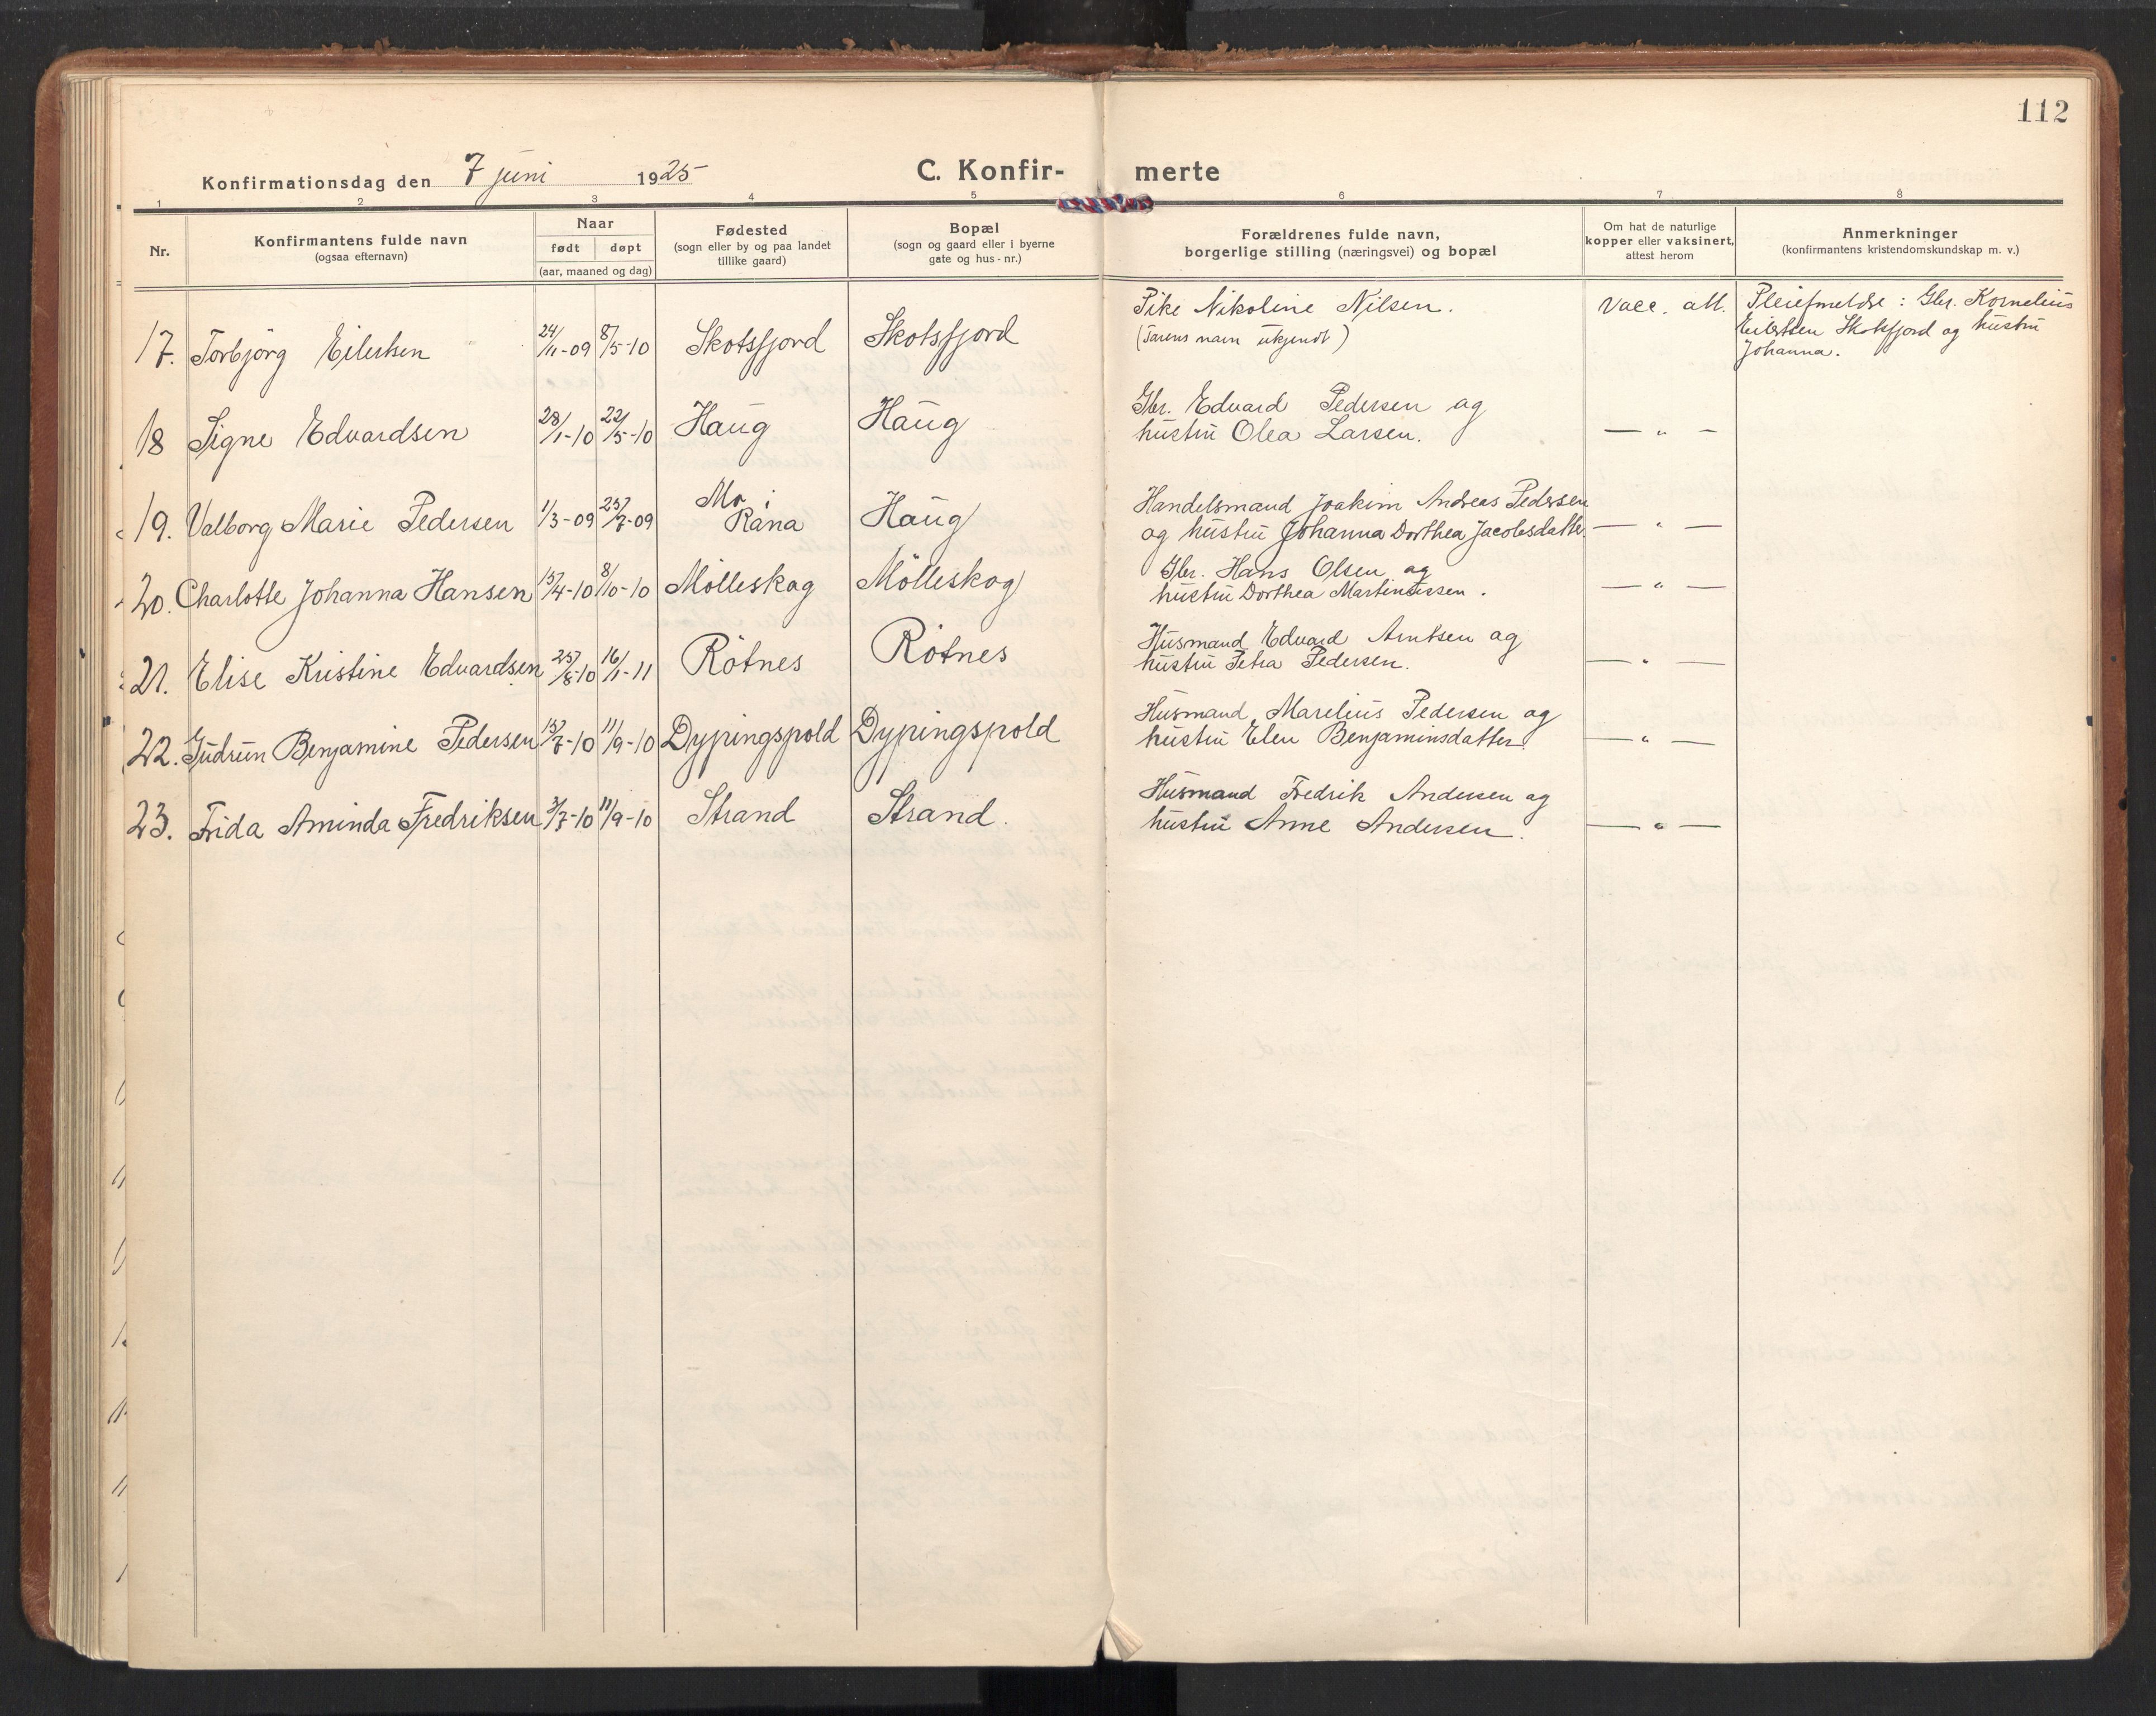 112
Konfirmationsdag den 7 juni 1925
C. Konfir- merte
1 2 3 4 5 6 7 8
Nr.
Konfirmantens fulde navn
(ogsaa efternavn)
Naar
født døpt
(aar, maaned og dag)
Fødested
(sogn eller by og paa landet
tillike gaard)
Bopæl
(sogn og gaard eller i byerne
gate og hus-nr.)
Forældrenes fulde navn,
borgerlige stilling (næringsvei) og bopæl
Om hat de naturlige
kopper eller vaksinert,
attest herom
Anmerkninger
(konfirmantens kristendomskundskap m. v.)
17. Torbjörg Eilertsen 24/11-09 8/5-10 Skotsfjord Skotsfjord Pike Nikoline Nilsen. Vacc. att.
(Farens navn ukjendt)
Pleieforeldre: Gbr. Kornelius
Eilertsen Skotsfjord og hustru
Johanna.
18 Signe Edvardsen 28/1-10 22/5-10 Haug Haug Gbr. Edvard Pedersen og
hustru Olea Larsen. — " —
19. Valborg Marie Pedersen 1/3-09 25/7-09 Mo i
Rana Haug Handelsmand Joakim Andreas Pedersen
og hustru Johanna Dorthea Jacobsdatter. — " —
20. Charlotte Johanna Hansen 15/4-10 8/10-10 Mölleskog Mölleskog Gbr. Hans Olsen og
hustru Dorthea Martinussen. — " —
21. Elise Kristine Edvardsen 25/8-10 16/1-11 Rötnes Rötnes Husmand Edvard Arntsen og
hustru Petra Pedersen. — " —
22. Gudrun Benjamine Pedersen 15/7-10 11/9-10 Dypingspold Dypingspold Husmand Marelius Pedersen og
hustru Elen Benjaminsdatter. — " —
23. Frida Aminda Fredriksen 3/7-10 11/9-10 Strand Strand. Husmand Fredrik Andersen og
hustru Anne Andersen. — " —